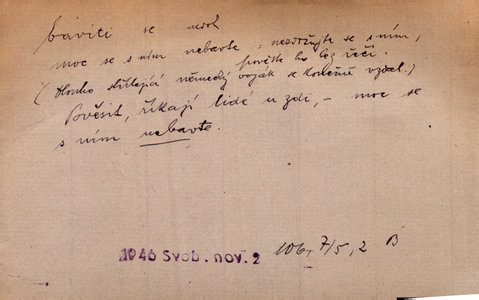 báviti se nedok
moc se s ním nebavte = nezdržujte se s ním,
pověste ho bez řečí.
(Dlouho střílející německý voják se konečně vzdal.)
Pověsit, říkají lidé u zdi, – moc se
s ním nebavte.
1946 Svob. nov. 2 106, 7/5, 2 B